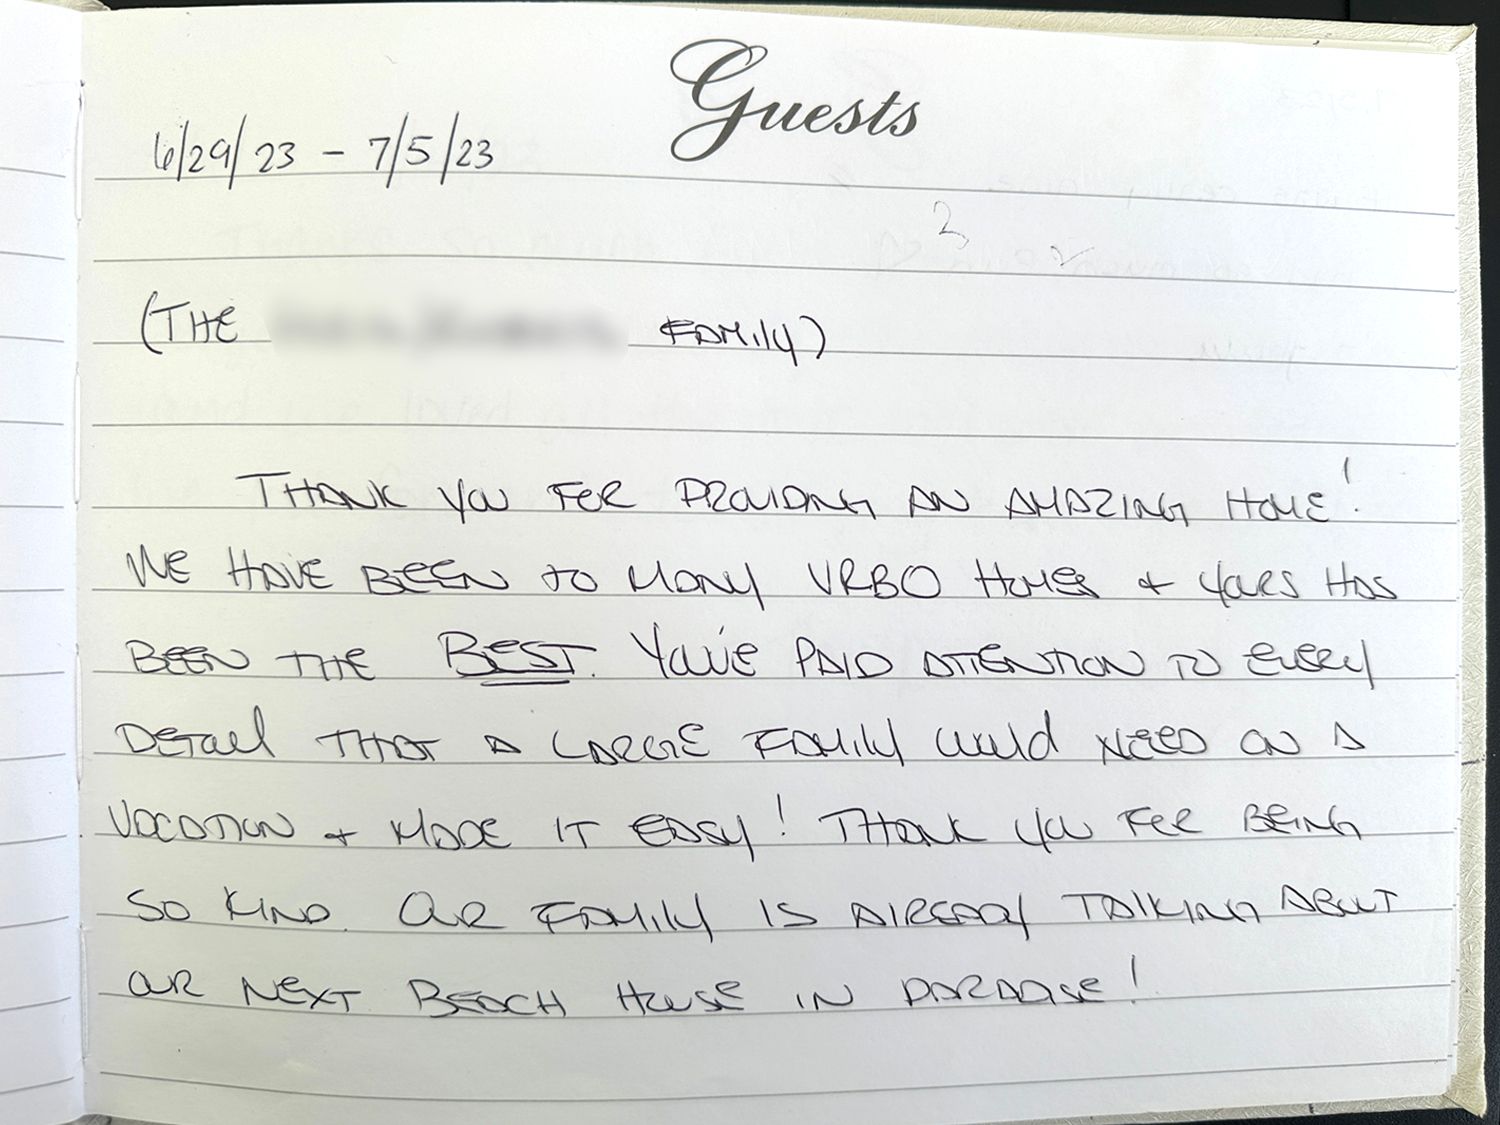 Guests
6/29/23 - 7/5/23
(THE FAMILY)
THANK YOU FOR PROVIDING AN AMAZING HOME!
WE HAVE BEEN TO MANY VRBO HOMES + YOURS HAS
BEEN THE BEST. YOU'VE PAID ATTENTION TO EVERY
DETAIL THAT A LARGE FAMILY WOULD NEED ON A
VACATION + MADE IT EASY! THANK YOU FOR BEING
SO KIND. OUR FAMILY IS ALREADY TALKING ABOUT
OUR NEXT BEACH HOUSE IN PARADISE!